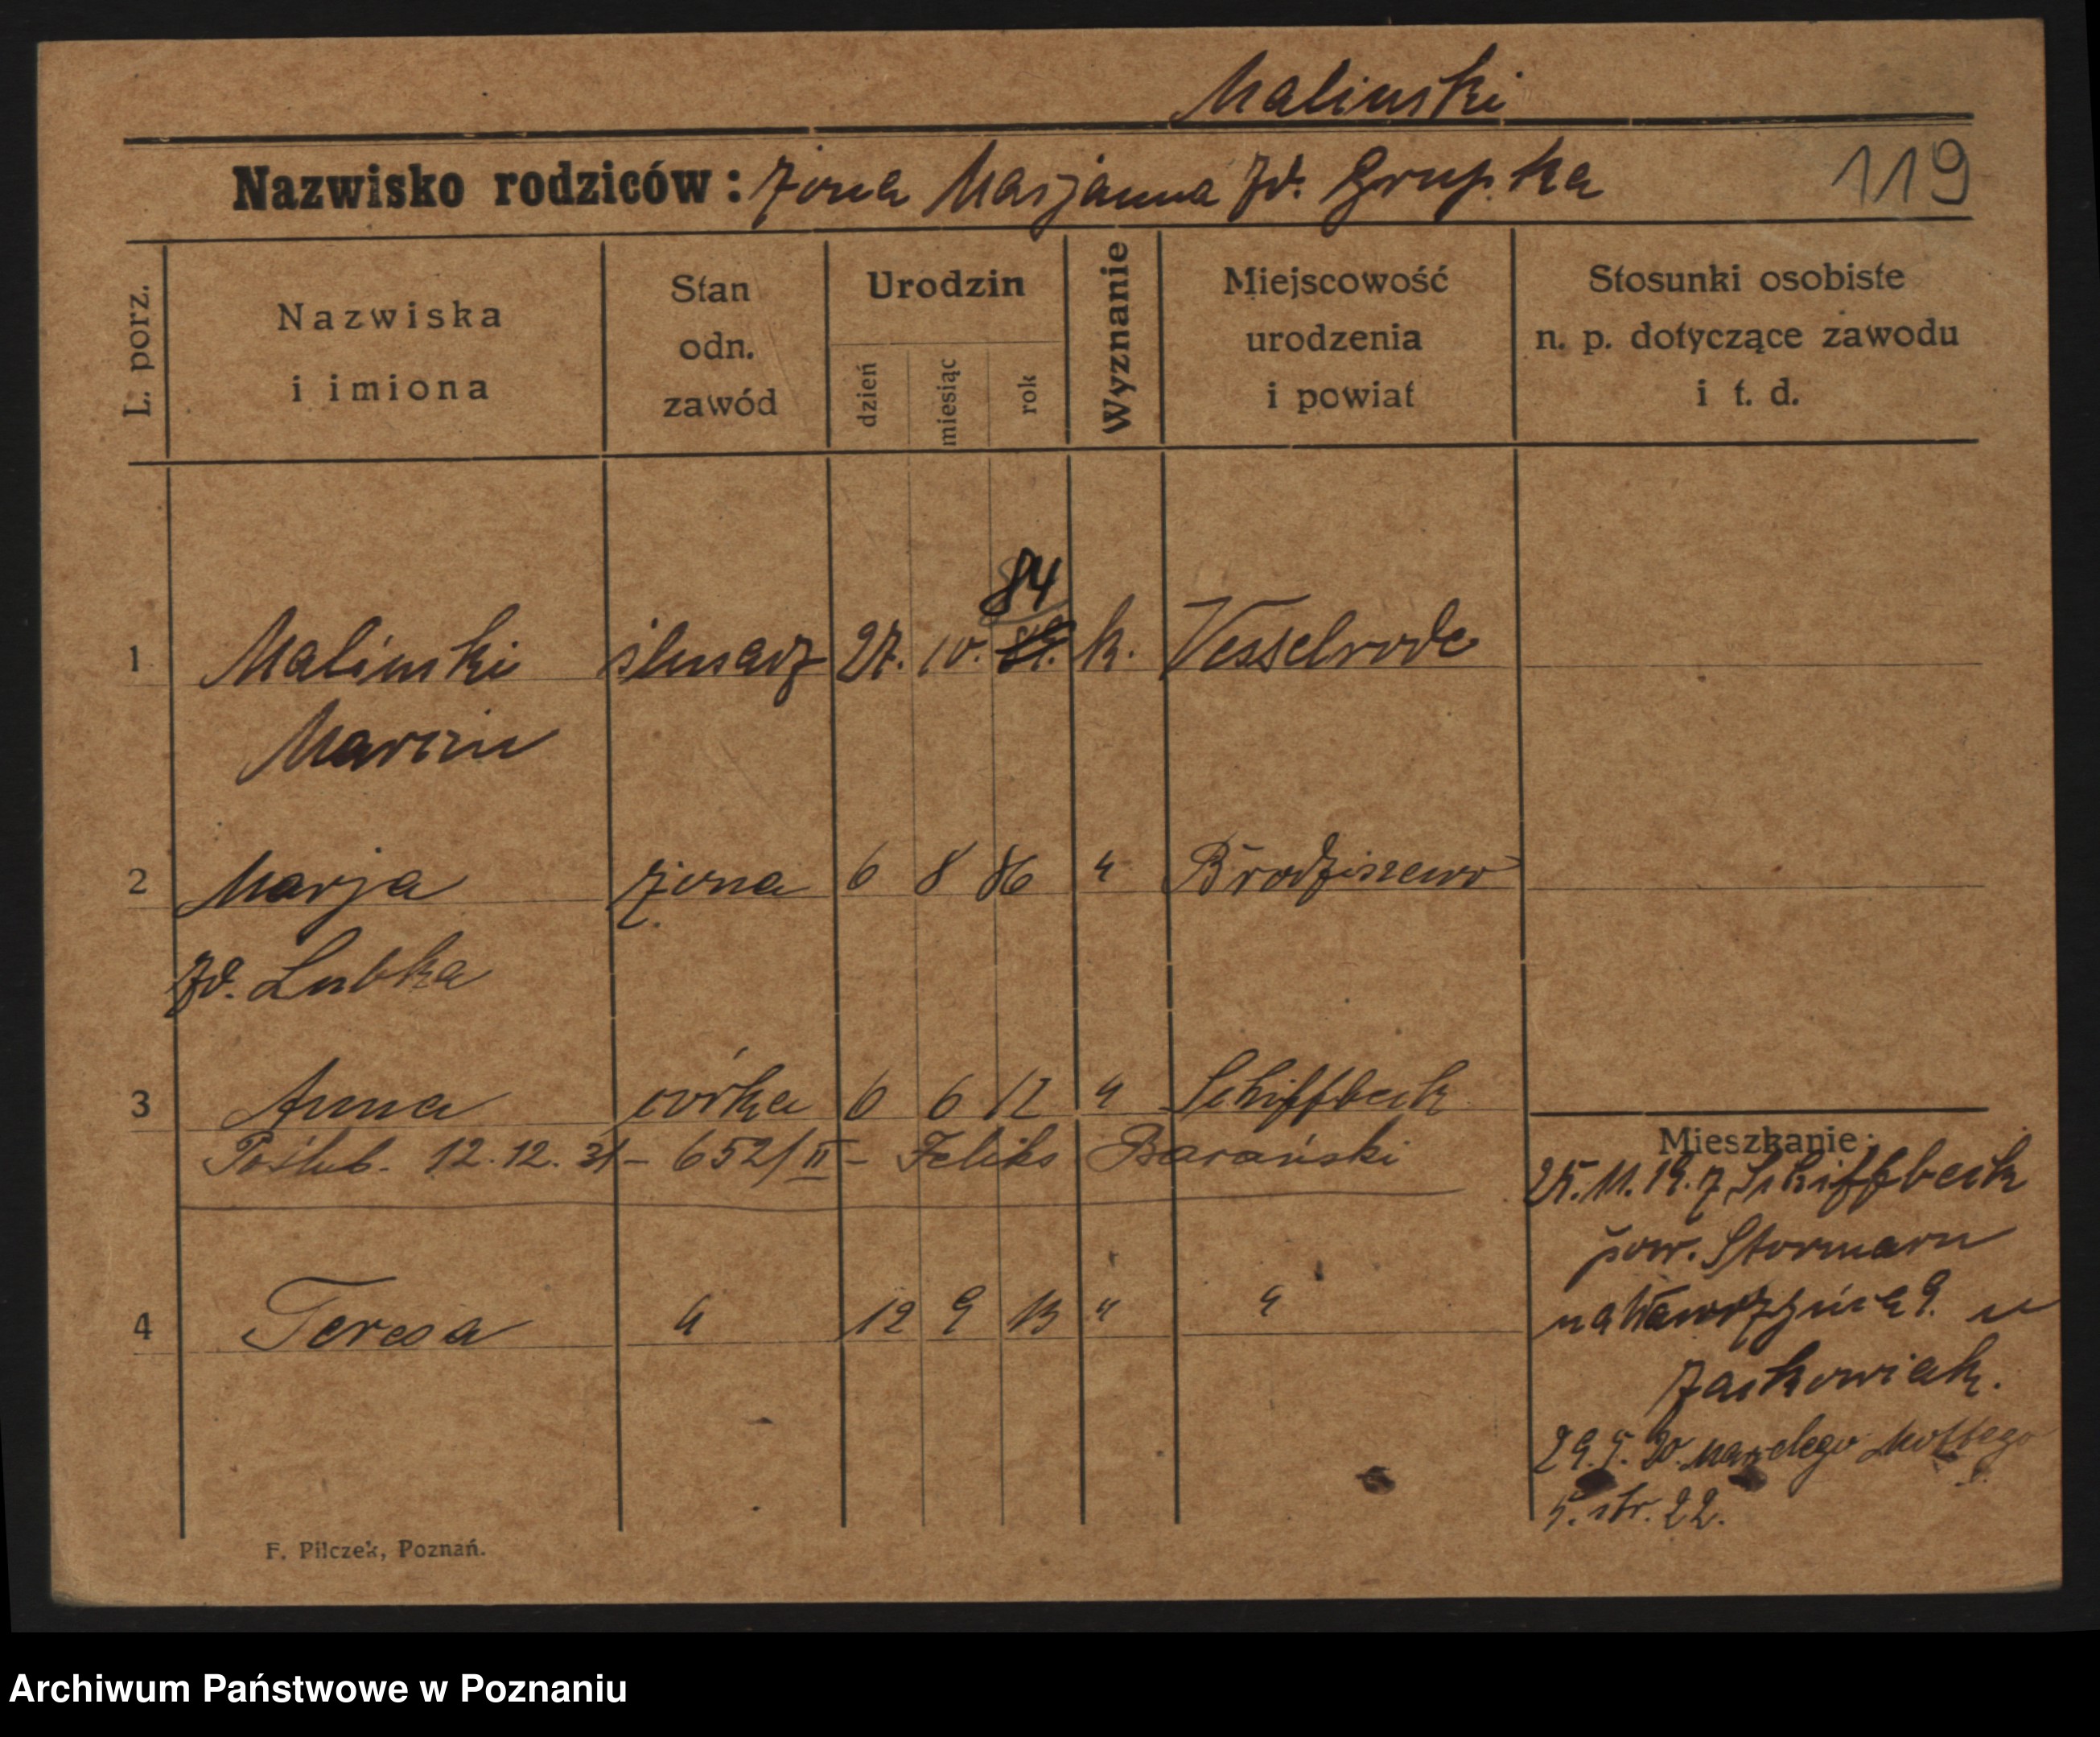 Malinski
Nazwisko rodziców: żona Marjanna zd. Grupka
119
L. porz.
Nazwiska
i imiona
Stan
odn.
zawód
Urodzin
dzień
miesiąc
rok
Wyznanie
Miejscowość
urodzenia
i powiat
Stosunki osobiste
n. p. dotyczące zawodu
i t. d.
84
1 Malinski ślusarz 27. 10. k. Vesselrode
Marcin
2 Marja żona 6 8 86 " Brodziszewo
zd. Lubka
3 Anna córka 6 6 12 " Schiffbeck
Poślub. 12.12.31 - 652/II - Feliks Barański
4 Teresa " 12 9 13 " "
Mieszkanie:
25.11.19. z Schiffbeck
pow. Stormarn
na Wawrzyńca 9. u
29.5.20.
5. str. 22.
F. Pilczek, Poznań.
Archiwum Państwowe w Poznaniu